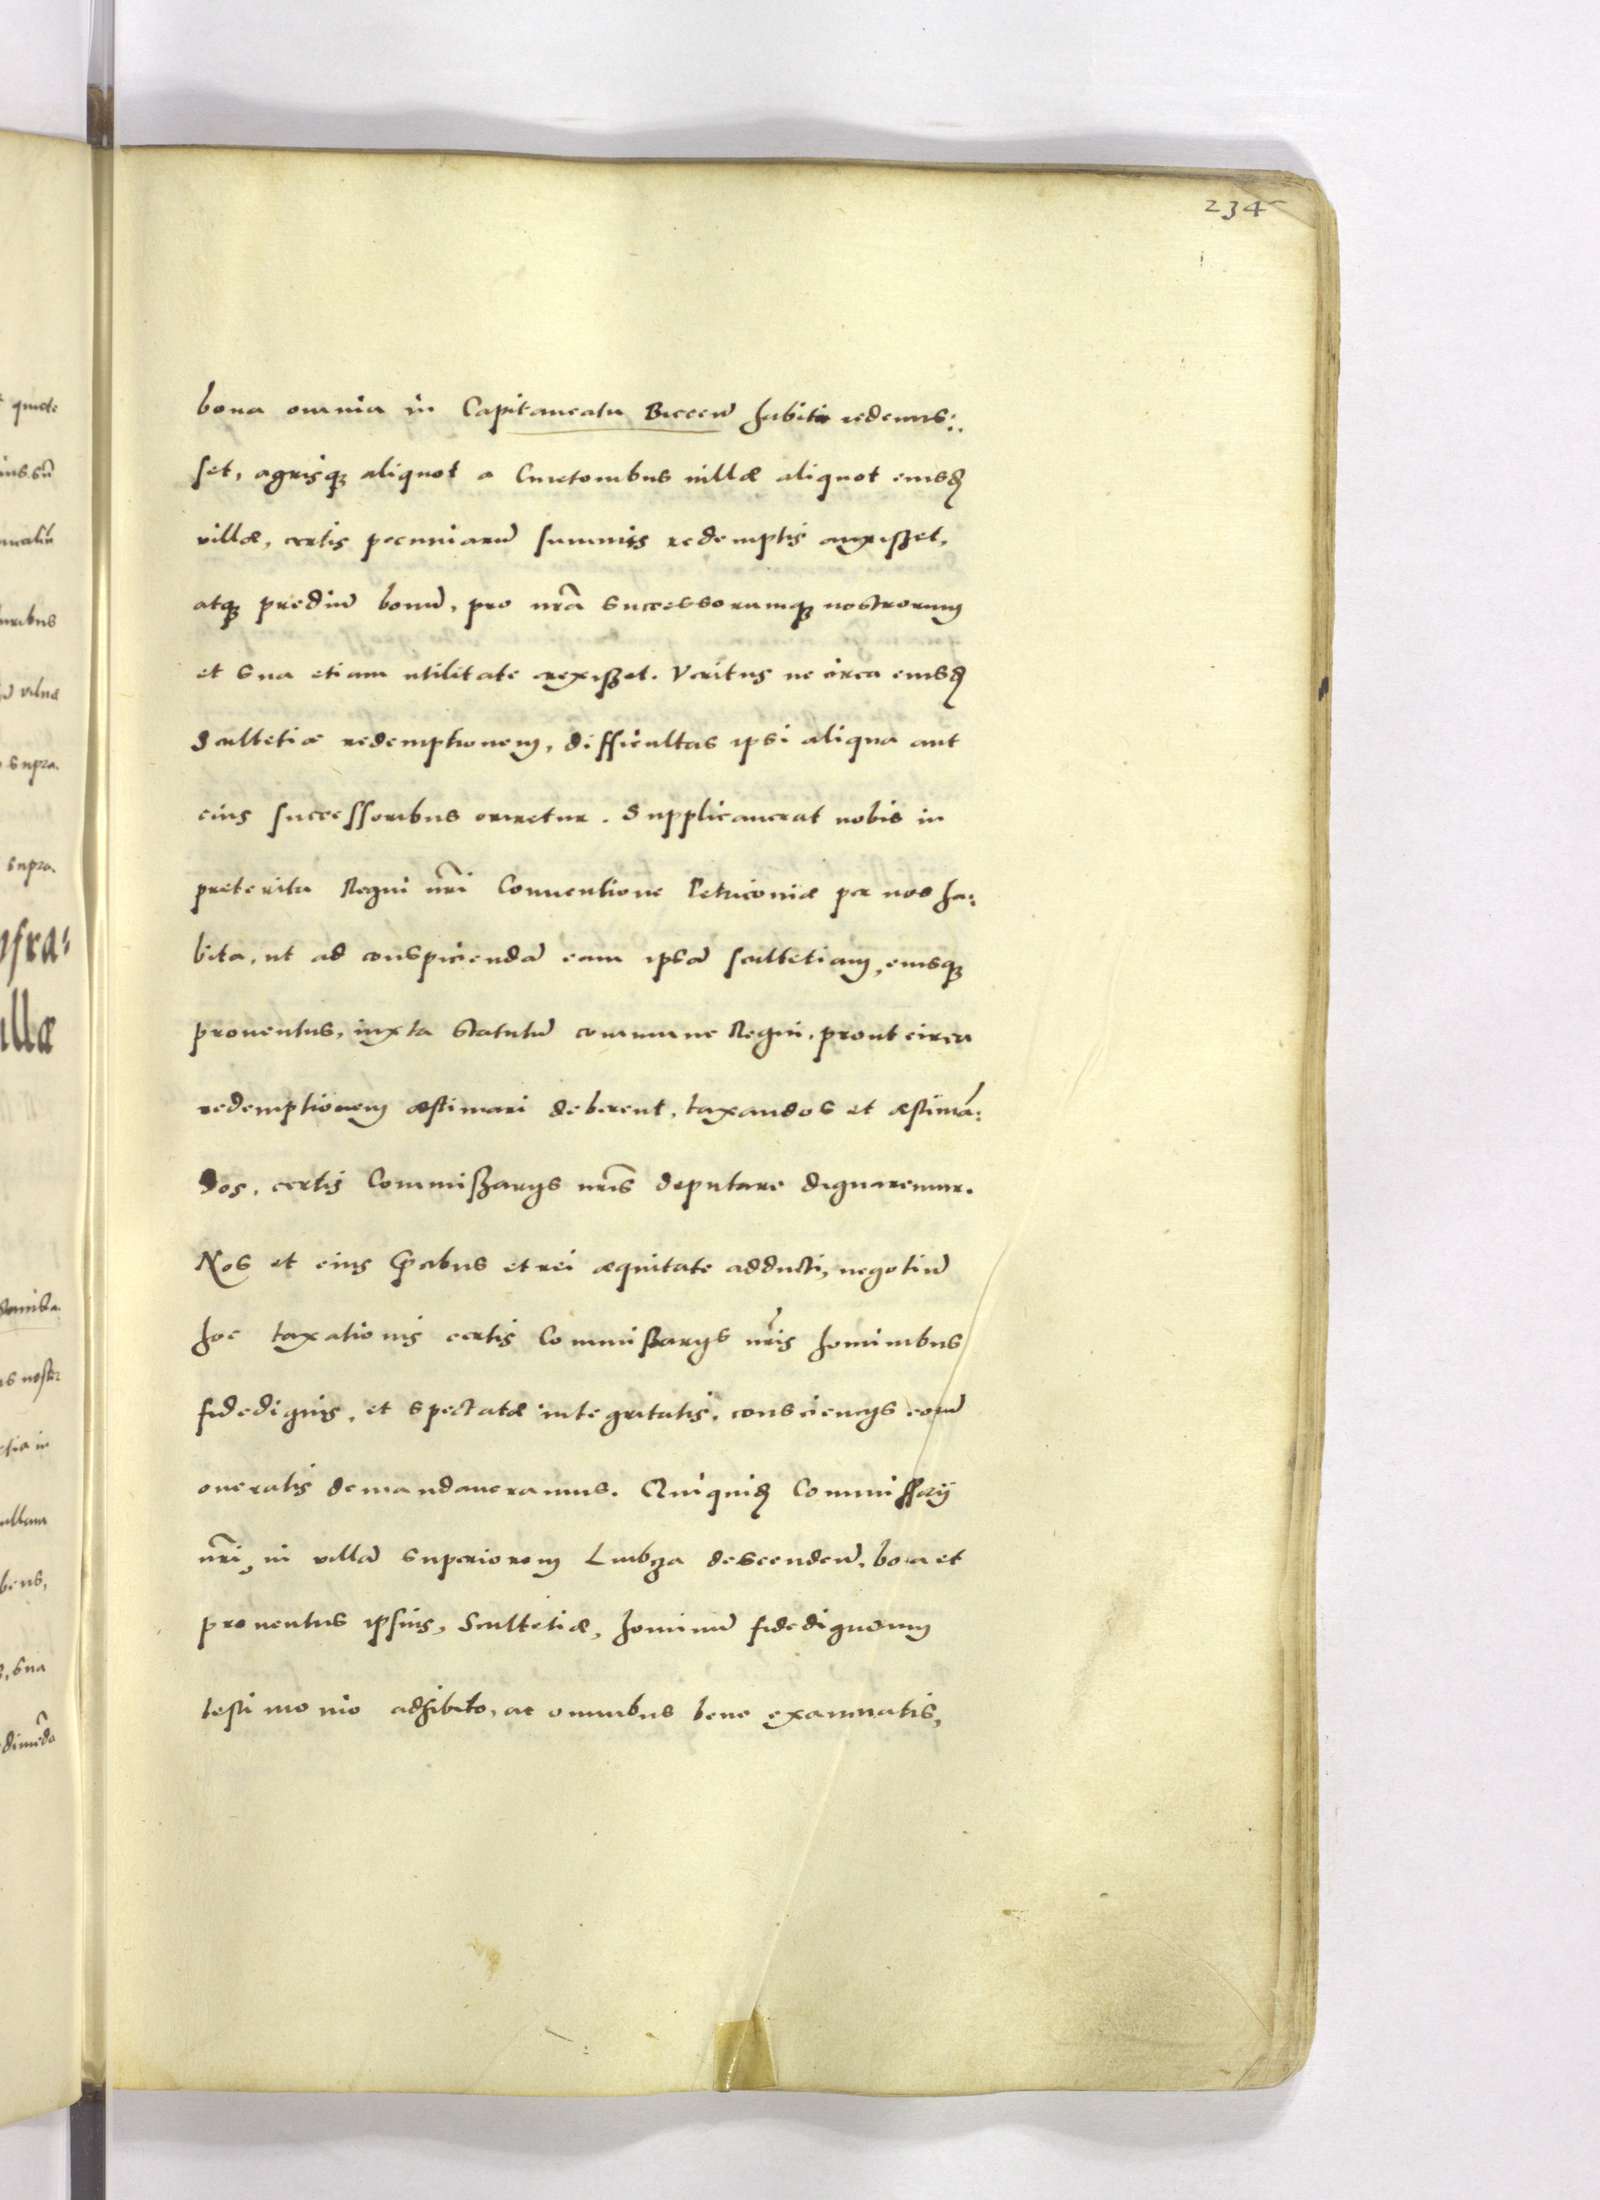 234
bona omnia in Capitaneatu Biecen̄ habita redemis:
set, agrisq₃ aliquot a Cmetonibus villæ aliquot eiusd̄
villæ, certis pecuniarū summis redemptis auxisset,
atq₃ prediū bonū, pro nrā successorumq₃ nostrorum
et sua etiam utilitate erexisset. Veritus ne circa eiusd̄
Scultetiæ redemptionem, difficultas ipsi aliqua aut
eius successoribus oriretur. Supplicauerat nobis in
preterita Regni nrī Conuentione Petricouiæ per nos ha:
bita, ut ad conspiciendā eam ipsā scultetiam, eiusq₃
prouentus, iuxta Statutū commune Regni, prout circa
redemptionem æstimari deberent, taxandos et æstimā:
dos, certis Commissarijs nrīs deputare dignaremur.
Nos et eius p̄cibus et rei æquitate adducti, negotiū
hoc taxationis certis Commissarijs nrīs hominibus
fidedignis, et spectatæ integritatis, conscientijs eorū
oneratis demandaueramus. Quiquid̄ Commissarij
nrī, in villā superiorem Lubża descenden̄, bona et
prouentus ipsius, Scultetiæ, hominū fidedignorum
testimonio adhibito, ac omnibus bene examinatis,